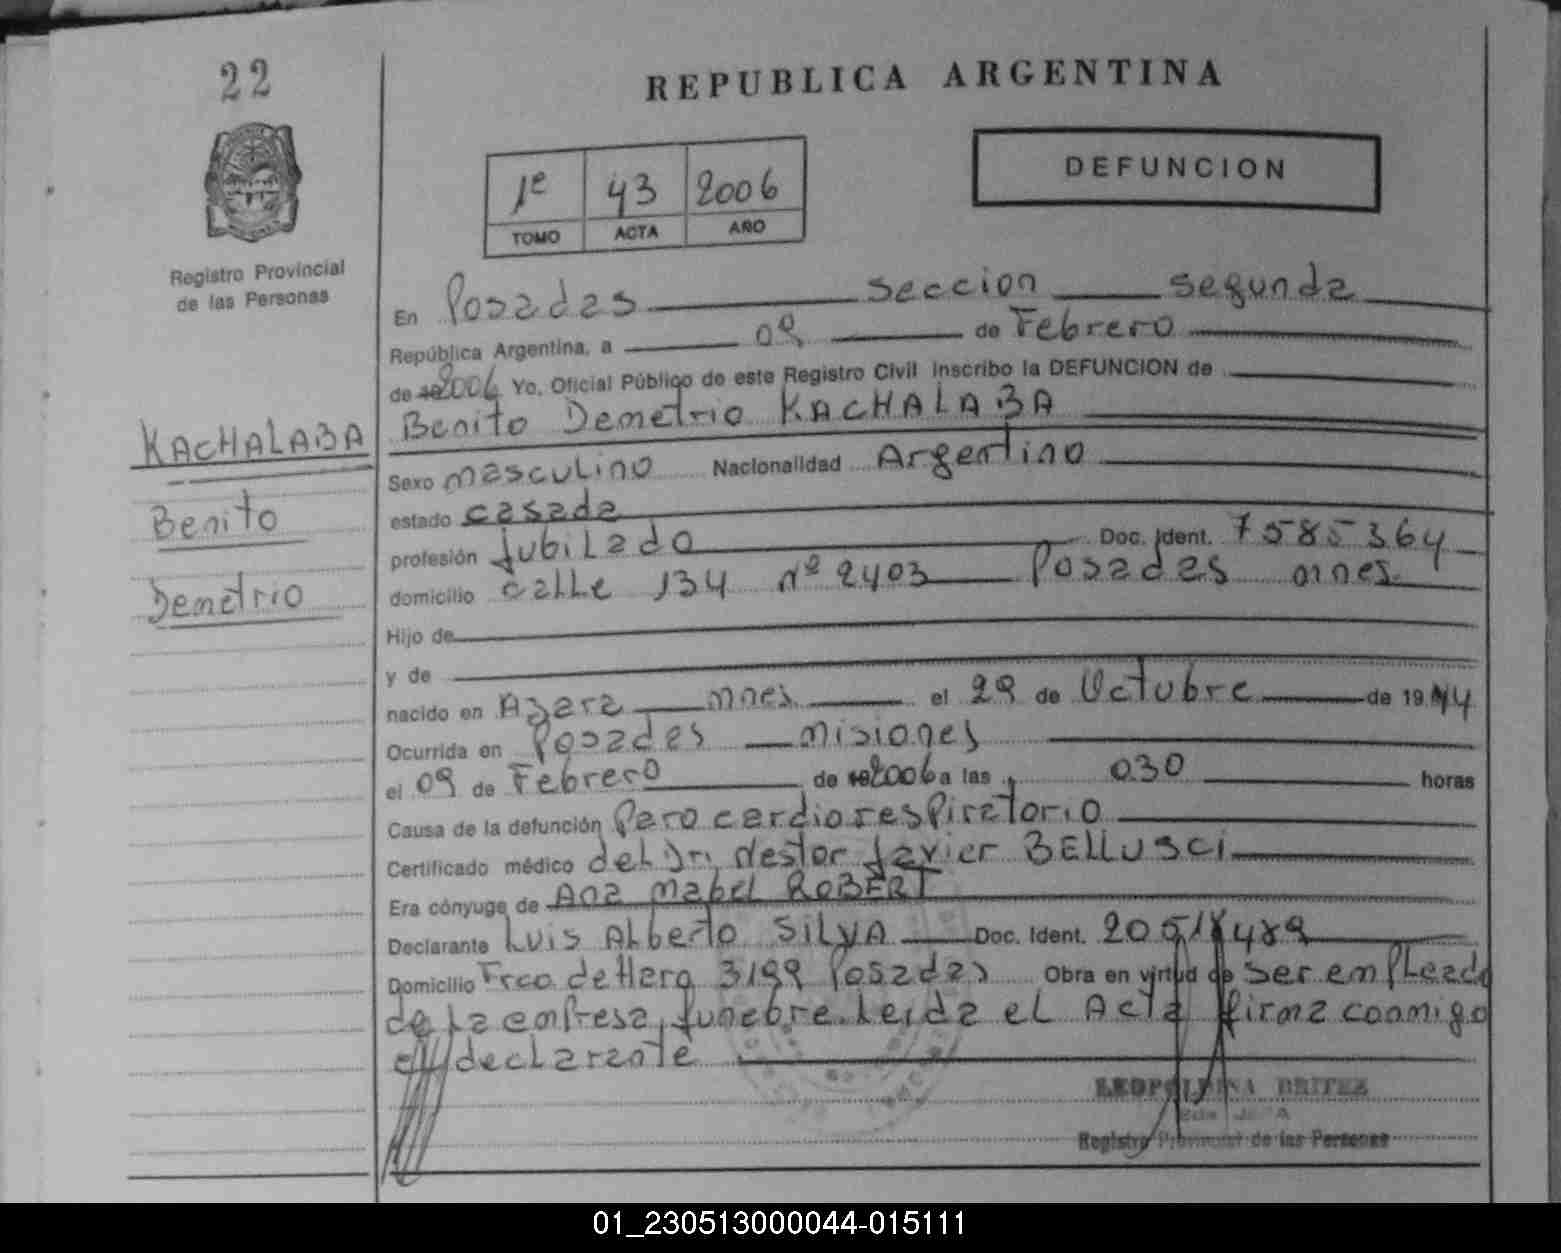 22
REPUBLICA ARGENTINA
1e 43 2006
TOMO ACTA AÑO
DEFUNCION
Registro Provincial
de las Personas
En Posadas seccion segunda
República Argentina, a 09 de Febrero
de 2006 Yo, Oficial Público de este Registro Civil inscribo la DEFUNCION de
Benito Demetrio KACHALABA
KACHALABA
Benito
Demetrio
Sexo masculino Nacionalidad Argentino
estado casada
profesión Jubilado Doc. Ident. 7585364
domicilio calle 134 nº 2403 Posadas mnes.
Hijo de
y de
nacido en Azara mnes el 29 de Octubre de 1944
Ocurrida en Posadas misiones
el 09 de Febrero de 2006 a las 030 horas
Causa de la defunción Paro cardiorespiratorio
Certificado médico del Dr. Nestor Javier BELLUSCI
Era cónyuge de Ana Mabel ROBERT
Declarante Luis Alberto SILVA Doc. Ident.
Domicilio Frco de Haro 3199 Posadas Obra en virtud de ser empleado
de la empresa funebre. Leida el Acta firma conmigo
el declarante
LEOPOLDINA BRITEZ
Registro Provincial de las Personas
01_230513000044-015111